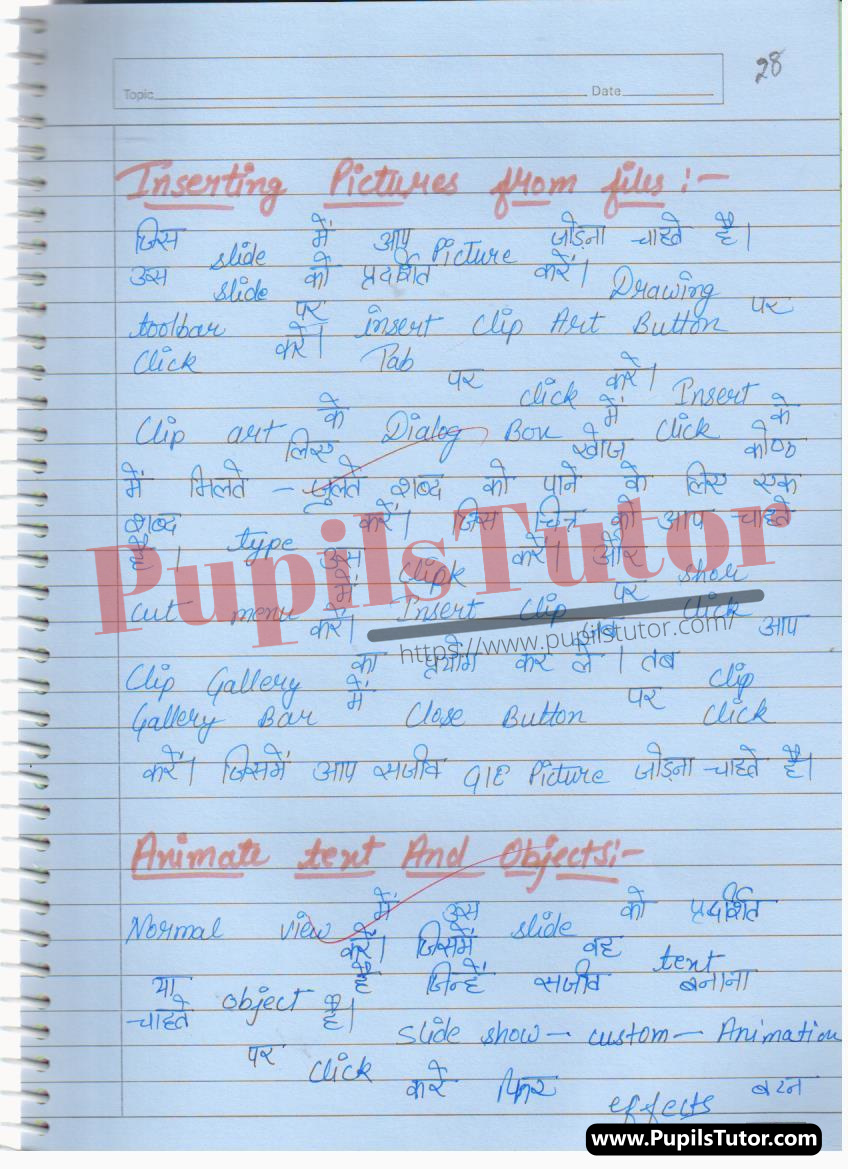 28
Topic Date
Inserting Pictures from files :-
जिस slide में आप Picture जोड़ना चाहते है।
उस slide को प्रदर्शित करें। Drawing
toolbar पर insert Clip Art Button पर
Click करें। Tab पर click करें। Insert
Clip art के Dialog Box में Click के
लिए खोज
में मिलते - जुलते शब्द को पाने के लिए एक
शब्द type करें। जिस चित्र को आप चाहते
है। उस Clipk करें। और shor
cut menu में Insert Clip पर Click
करें। आप
Clip Gallery का प्रयोग कर ले। तब Clip
Gallery Bar में Close Button पर Click
करें। जिसमें आप सजीव GIE Picture जोड़ना चाहते है।
Animate text And Objects:-
Normal view में उस slide को प्रदर्शित
करें। जिसमें वह text
या object है जिन्हें सजीव बनाना
चाहते है। Slide show - custom - Animation
पर click करें फिर effects बटन
PupilsTutor
https://www.pupilstutor.com/
www.PupilsTutor.com